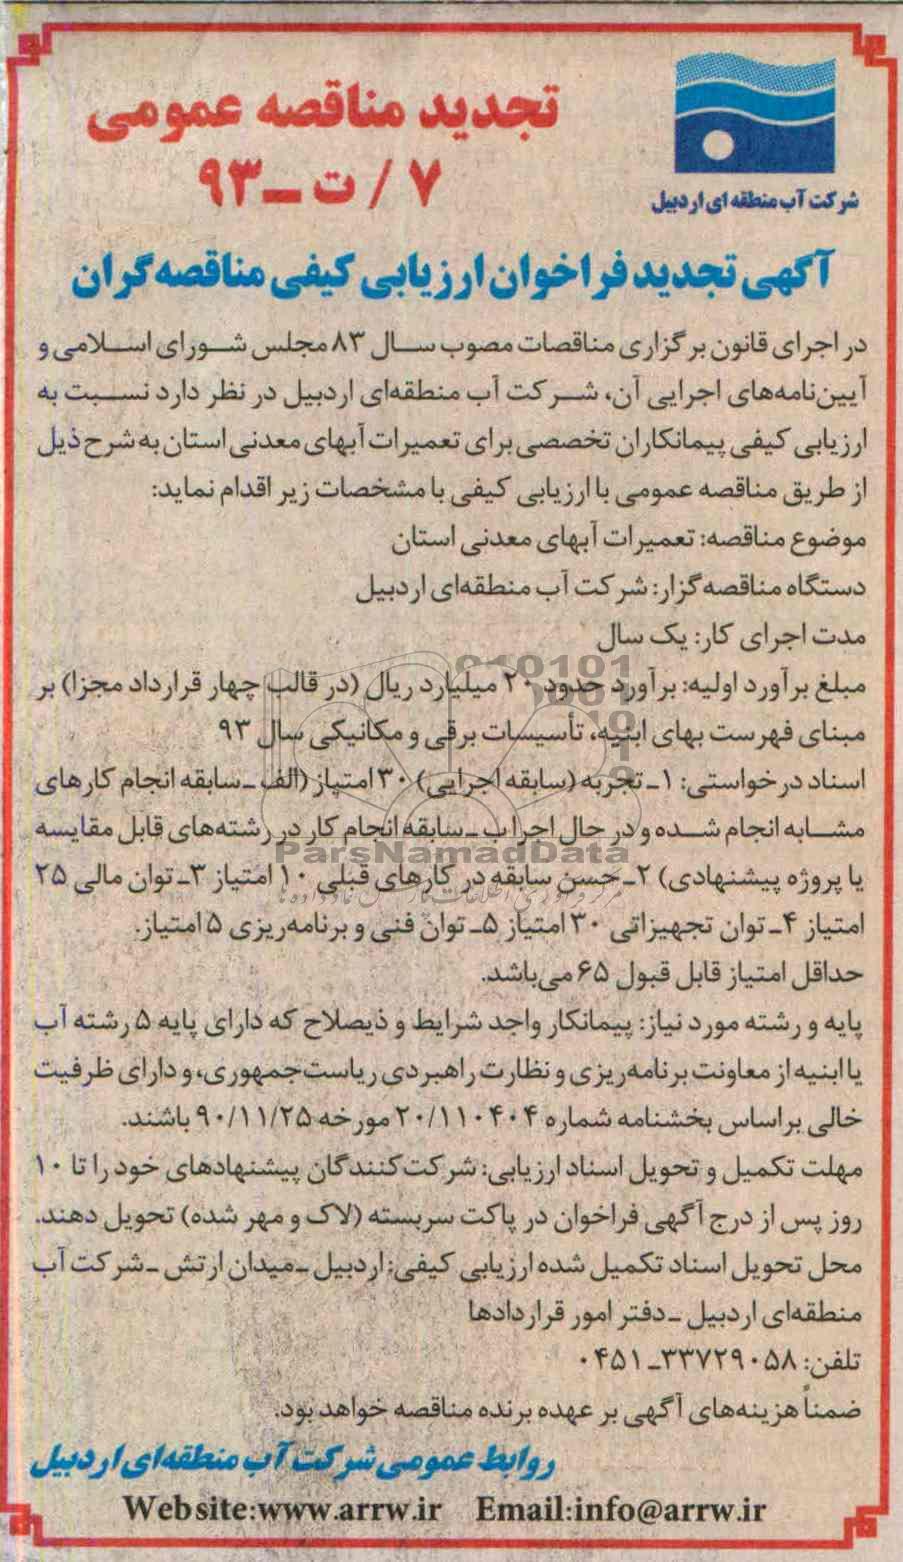 تجدید مناقصه عمومی
۷ / ت ـ ۹۳
شرکت آب منطقه ای اردبیل
آگهی تجدید فراخوان ارزیابی کیفی مناقصه گران
در اجرای قانون برگزاری مناقصات مصوب سال ۸۳ مجلس شورای اسلامی و
آیین‌نامه‌های اجرایی آن، شرکت آب منطقه‌ای اردبیل در نظر دارد نسبت به
ارزیابی کیفی پیمانکاران تخصصی برای تعمیرات آبهای معدنی استان به شرح ذیل
از طریق مناقصه عمومی با ارزیابی کیفی با مشخصات زیر اقدام نماید:
موضوع مناقصه: تعمیرات آبهای معدنی استان
دستگاه مناقصه‌گزار: شرکت آب منطقه‌ای اردبیل
مدت اجرای کار: یک سال
مبلغ برآورد اولیه: برآورد حدود ۲۰ میلیارد ریال (در قالب چهار قرارداد مجزا) بر
مبنای فهرست بهای ابنیه، تأسیسات برقی و مکانیکی سال ۹۳
اسناد درخواستی: ۱ـ تجربه (سابقه اجرایی) ۳۰ امتیاز (الف ـ سابقه انجام کارهای
مشابه انجام شده و در حال اجرا ب ـ سابقه انجام کار در رشته‌های قابل مقایسه
ParsNamadData
یا پروژه پیشنهادی) ۲ـ حسن سابقه در کارهای قبلی ۱۰ امتیاز ۳ـ توان مالی ۲۵
امتیاز ۴ـ توان تجهیزاتی ۳۰ امتیاز ۵ـ توان فنی و برنامه‌ریزی ۵ امتیاز.
حداقل امتیاز قابل قبول ۶۵ می‌باشد.
پایه و رشته مورد نیاز: پیمانکار واجد شرایط و ذیصلاح که دارای پایه ۵ رشته آب
یا ابنیه از معاونت برنامه‌ریزی و نظارت راهبردی ریاست‌جمهوری، و دارای ظرفیت
خالی براساس بخشنامه شماره ۲۰/۱۱۰۴۰۴ مورخه ۹۰/۱۱/۲۵ باشند.
مهلت تکمیل و تحویل اسناد ارزیابی: شرکت‌کنندگان پیشنهادهای خود را تا ۱۰
روز پس از درج آگهی فراخوان در پاکت سربسته (لاک و مهر شده) تحویل دهند.
محل تحویل اسناد تکمیل شده ارزیابی کیفی: اردبیل ـ میدان ارتش ـ شرکت آب
منطقه‌ای اردبیل ـ دفتر امور قراردادها
تلفن: ۳۳۷۲۹۰۵۸ـ۰۴۵۱
ضمناً هزینه‌های آگهی بر عهده برنده مناقصه خواهد بود.
روابط عمومی شرکت آب منطقه‌ای اردبیل
Website:www.arrw.ir Email:info@arrw.ir